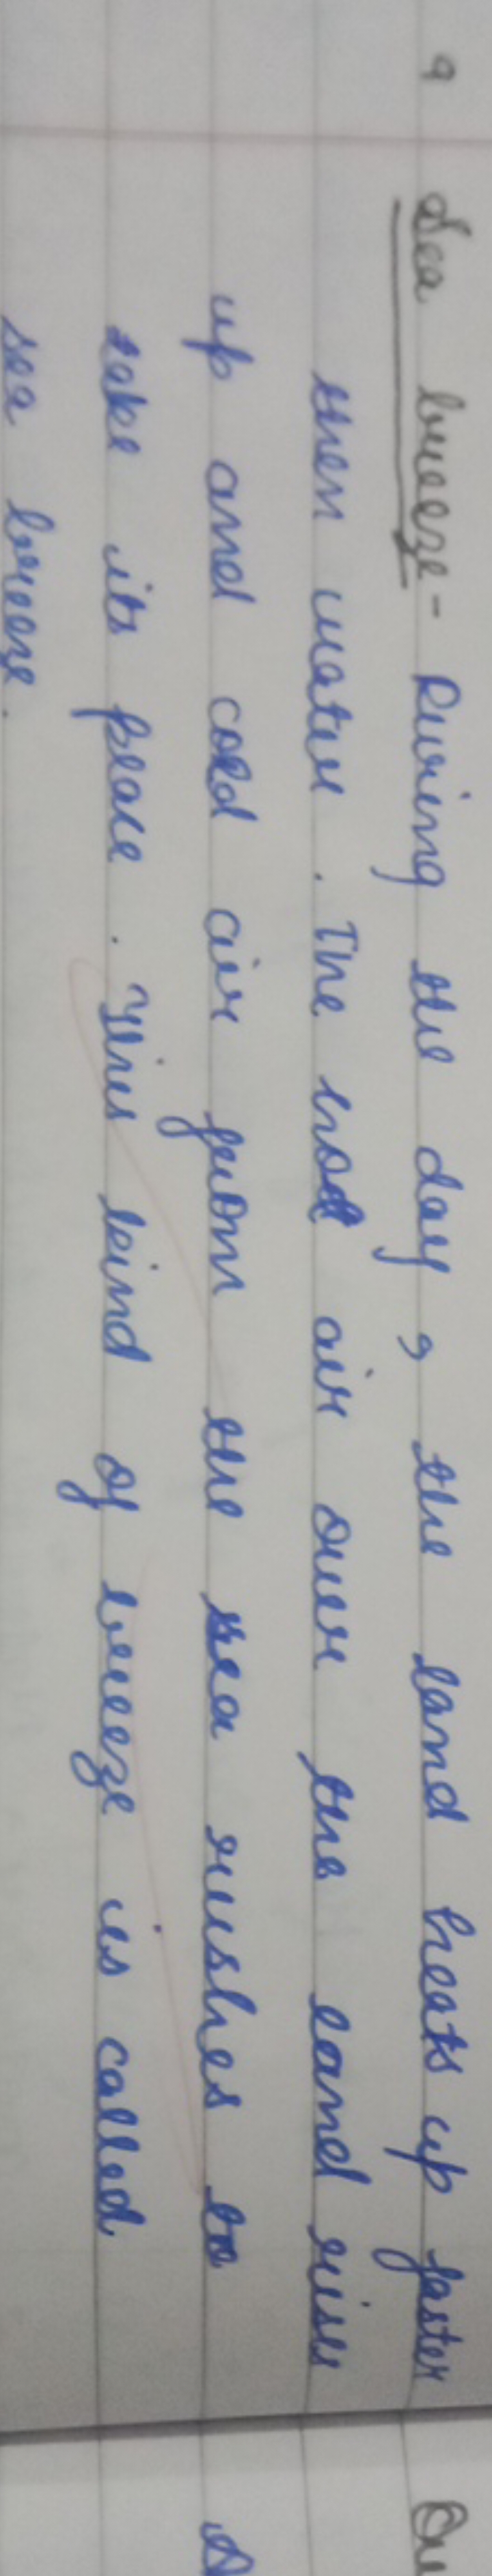 9 Sea breeze - During the day, the land heats up faster
then water. The hot air over the land rises
up and cold air from the sea rushes to
take its place. This kind of breeze is called
sea breeze.